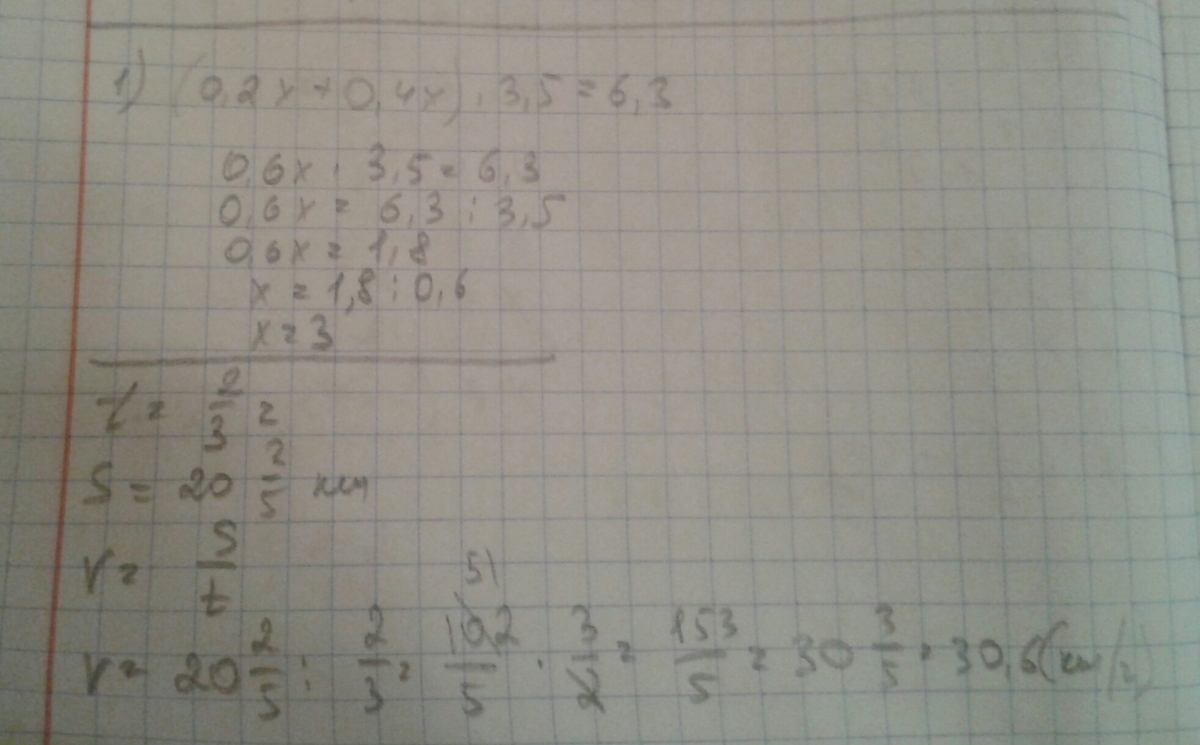 1) (0,2x+0,4x)·3,5=6,3
0,6x·3,5=6,3
0,6x=6,3:3,5
0,6x=1,8
x=1,8:0,6
x=3
t= 2/3 ч
S= 20 2/5 км
V= S/t
V= 20 2/5 : 2/3 = 102/5 · 3/2 = 153/5 = 30 3/5 = 30,6(км/ч)
51